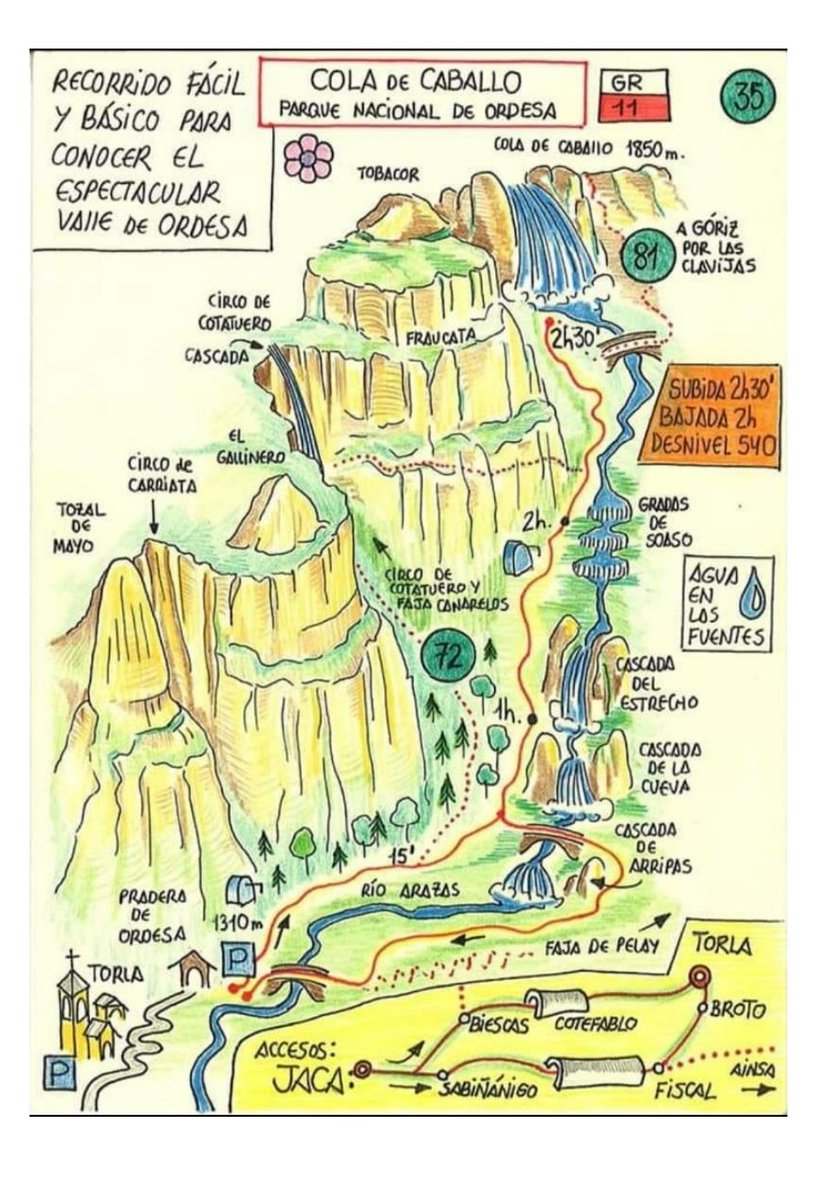 RECORRIDO FÁCIL
Y BÁSICO PARA
CONOCER EL
ESPECTACULAR
VALLE DE ORDESA
COLA DE CABALLO
PARQUE NACIONAL DE ORDESA
GR
11
35
COLA DE CABALLO 1850 m.
TOBACOR
81
A GÓRIZ
POR LAS
CLAVIJAS
CIRCO DE
COTATUERO
CASCADA
FRAUCATA
2h30'
SUBIDA 2h30'
BAJADA 2h
DESNIVEL 540
EL
GALLINERO
CIRCO de
CARRIATA
TOZAL
DE
MAYO
2h.
GRADAS
DE
SOASO
CIRCO DE
COTATUERO Y
FAJA CANARELOS
AGUA
EN
LAS
FUENTES
72
CASCADA
DEL
ESTRECHO
1h.
CASCADA
DE LA
CUEVA
CASCADA
DE
ARRIPAS
15'
RÍO ARAZAS
PRADERA
DE
ORDESA
1310 m
P
FAJA DE PELAY
TORLA
P
TORLA
BROTO
BIESCAS
COTEFABLO
ACCESOS:
JACA
SABIÑÁNIGO
FISCAL
AINSA